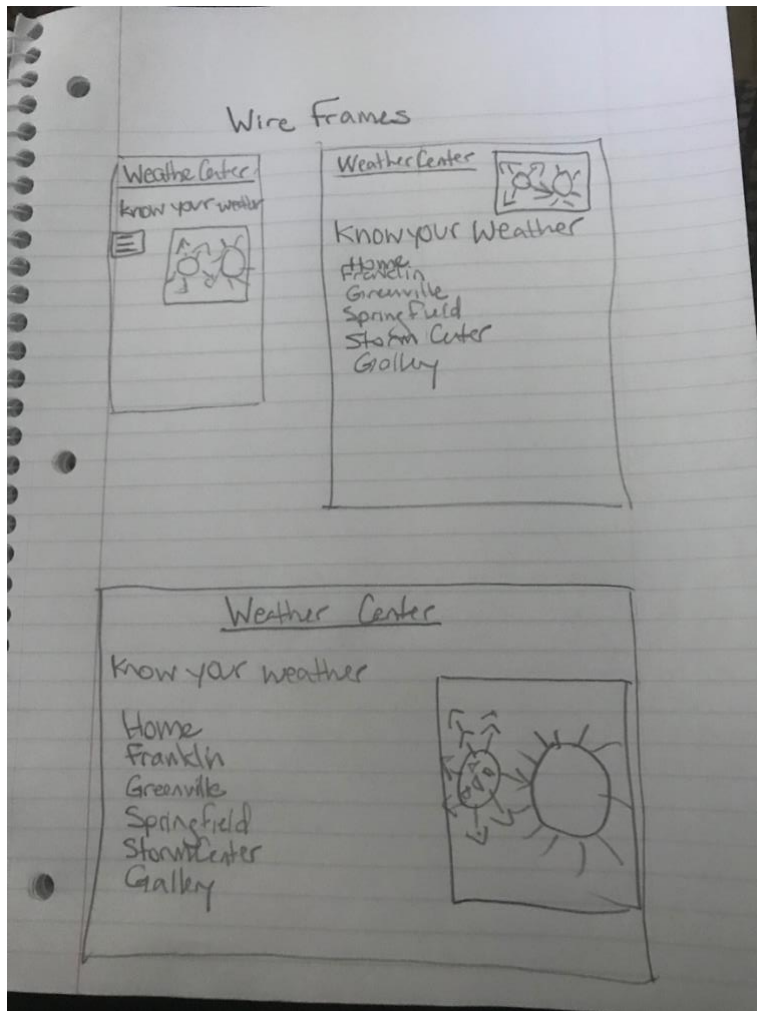 Wire Frames
Weathe Center
Know your weather
Weather Center
Know your Weather
Home
Franklin
Greenville
Springfield
Storm Center
Gallery
Weather Center
Know your weather
Home
Franklin
Greenville
Springfield
Storm Center
Gallery